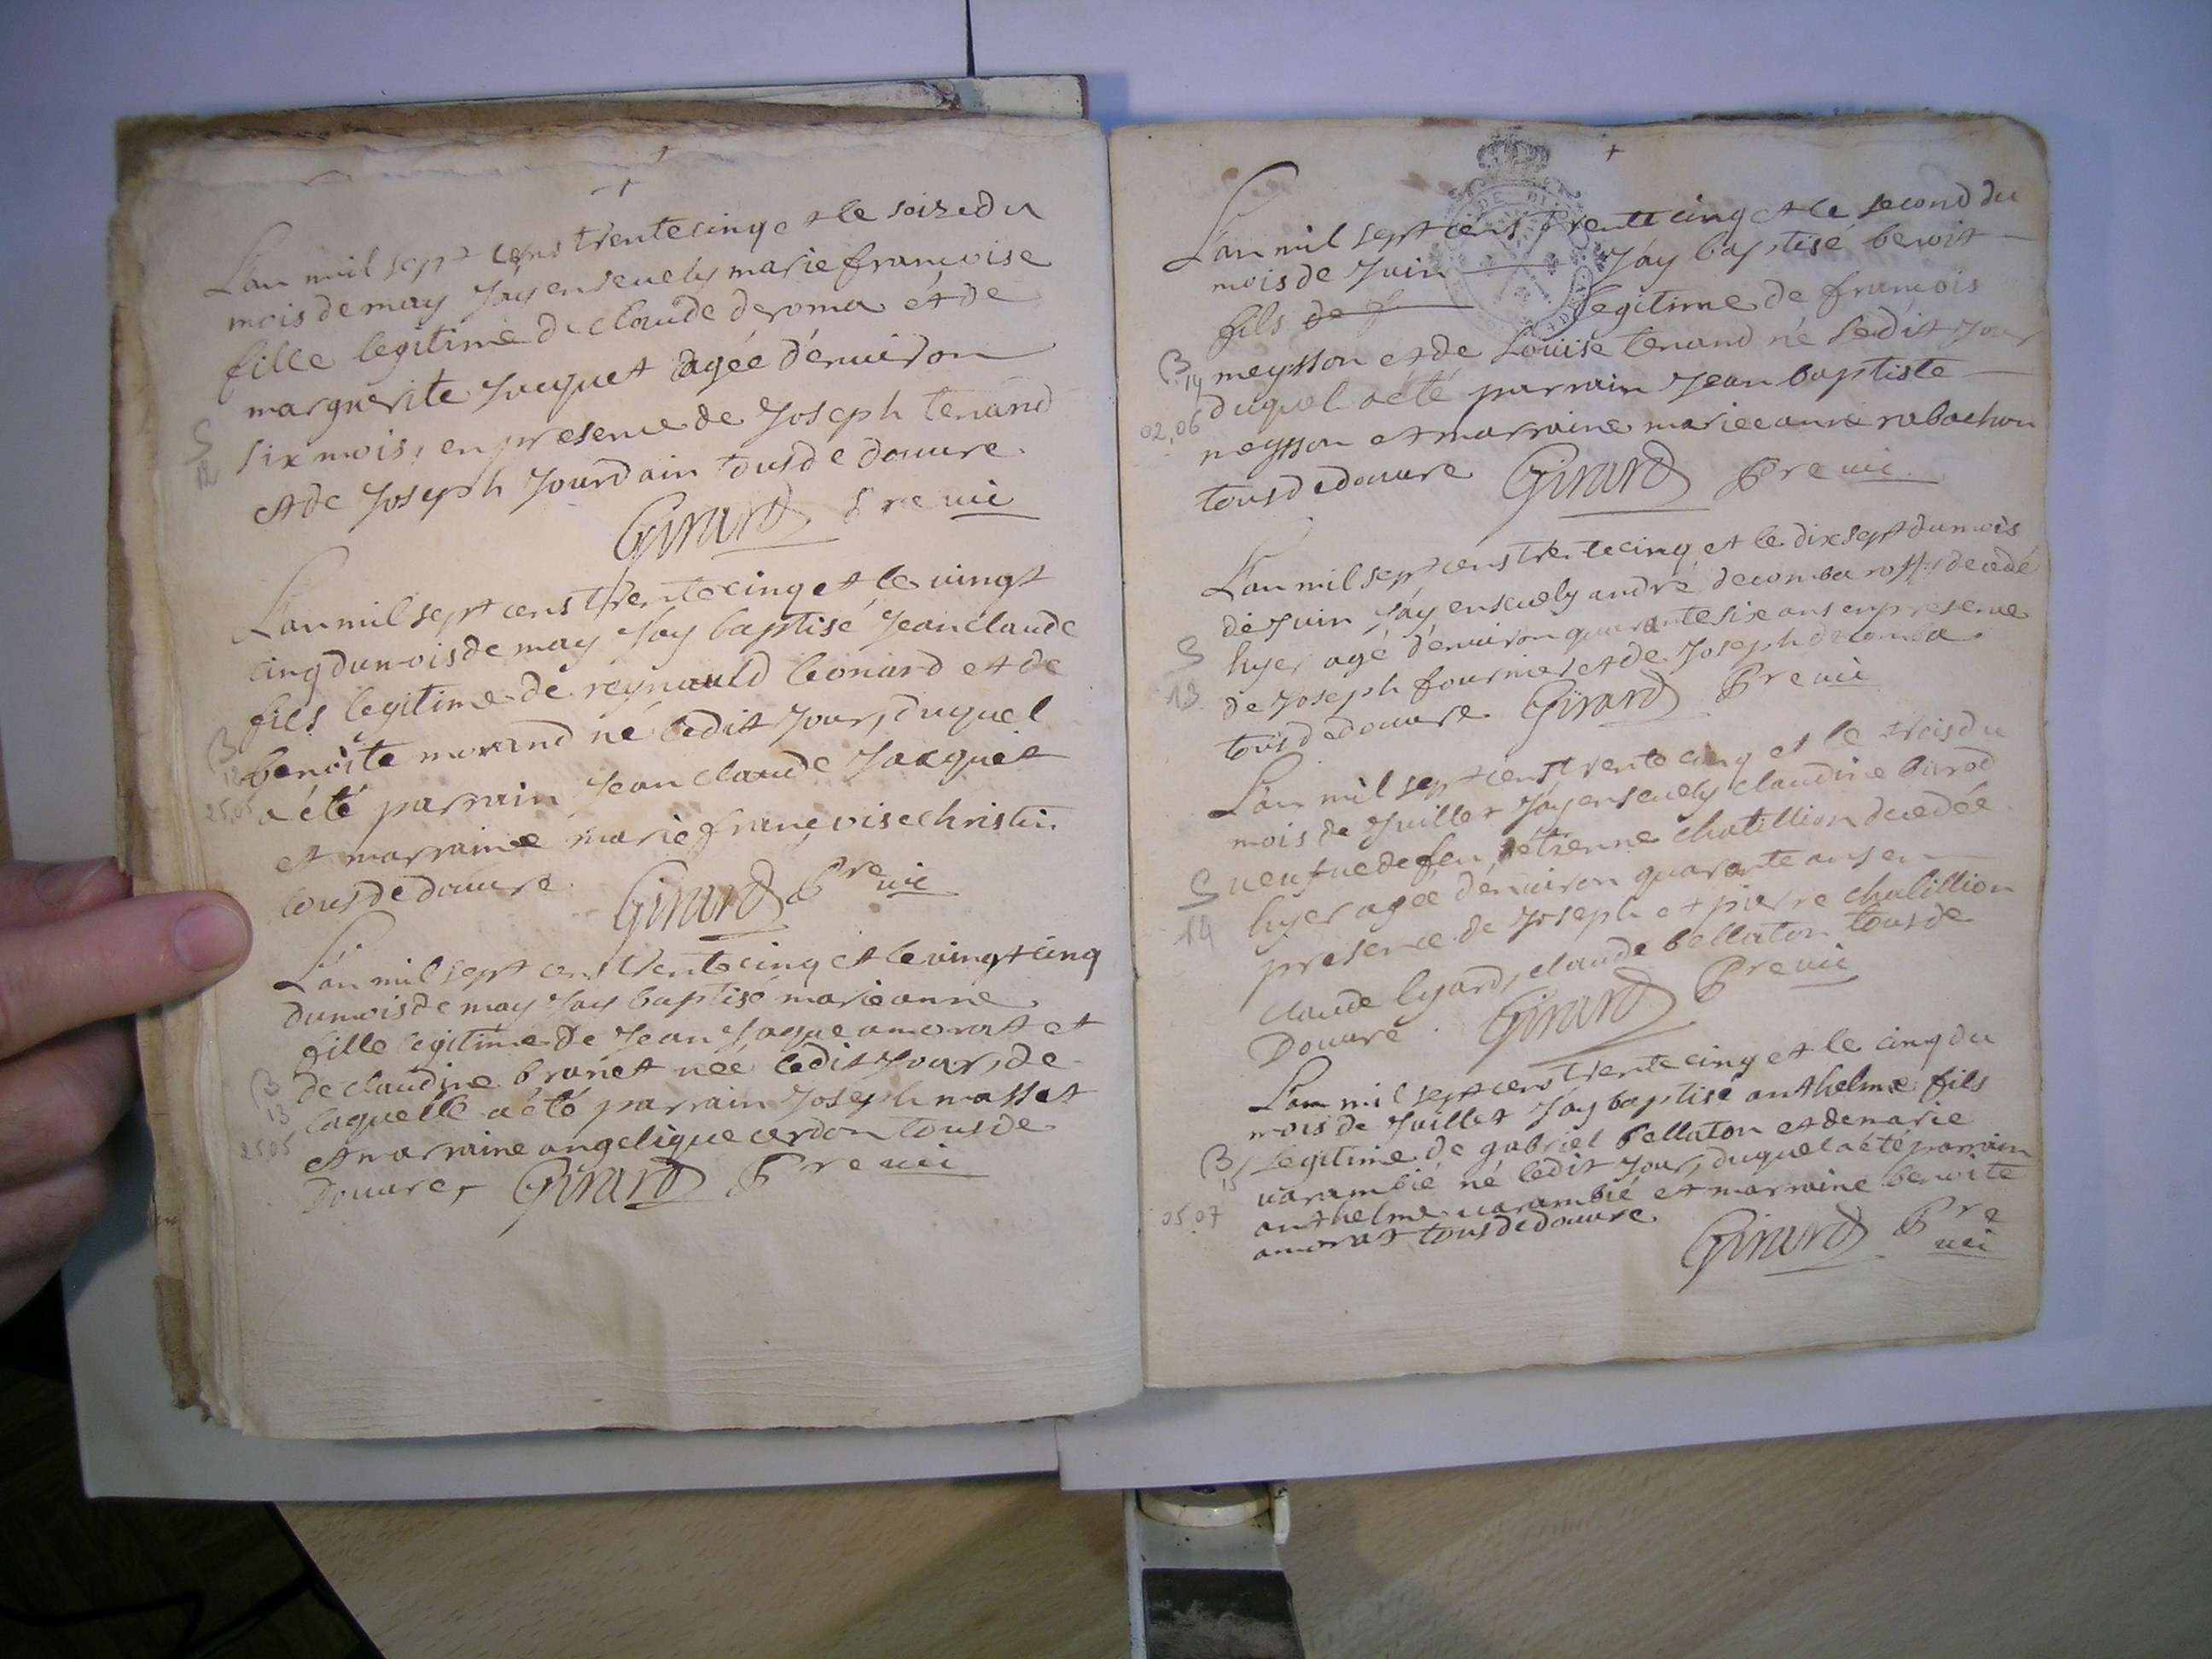 L'an mil sept cens trente cinq et le seize du
mois de may J'ay ensevely marie francoise
fille legitime de claude deroma et de
marguerite Jacquet agée d'environ
S
12
six mois, en presence de Joseph tenand
et de Joseph Jourdain tous de douvre.
Girard Pre vic
L'an mil sept cens trente cinq et le vingt
cinq du mois de may J'ay baptisé Jean claude
fils legitime de reynauld leonard et de
B
12
25.05
benoite morand né ledit Jour, duquel
a été parrain Jean claude Jacquet
et marraine marie francoise christin
tous de douvre.
Girard Pre vic
L'an mil sept cens trente cinq et le vingt cinq
du mois de may J'ay baptisé marie anne
fille legitime de Jean Jaque amorat et
B
13
25.05
de claudine brunet née ledit Jour, de
laquelle a été parrain Joseph massat
et marraine angelique cerdon tous de
Douvre, Girard Pre vic
DE DI
L'an mil sept cens trente cinq et le second du
mois de Juin J'ay baptisé benoit
fils de legitime de francois
B
14
02.06
meysson et de Louise tenand né ledit Jour
duquel a été parrain Jean baptiste
meysson et marraine marie anne rabachon
tous de douvre Girard Pre vic.
L'an mil sept cens trente cinq et le dix sept du mois
de Juin J'ay ensevely andré decomba decedé
S
13
hyer agé d'environ quarante six ans en presence
de Joseph fournier et de Joseph decomba
tous de douvre Girard Pre vic
L'an mil sept cens trente cinq et le trois du
mois de Juillet J'ay ensevely claudine
S
14
veufve de feu etienne chatillion decedée
hyer agée d'environ quarante ans en
presence de Joseph et pierre chatillion
claude lyard, claude bellaton tous de
Douvre. Girard Pre vic
L'an mil sept cens trente cinq et le cinq du
mois de Juillet J'ay baptisé anthelme fils
B
15
05.07
legitime de gabriel bellaton et de marie
varambié né ledit Jour, duquel a été parrain
anthelme varambié et marraine benoite
amorat tous de douvre
Girard Pre
vic